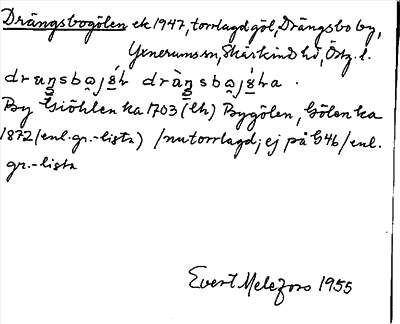 Drängsbogölen ek 1947, torrlagd göl, Drängsbo by,
Yxnerums sn, Skärkind hd, Östg. l.
By Giöhlen ka 1703 (lh) Bygölen, Gölen ka
1872/enl.gr.-lista) /nu torrlagd; ej på G46/enl.
gr.-lista
Evert Melefors 1955